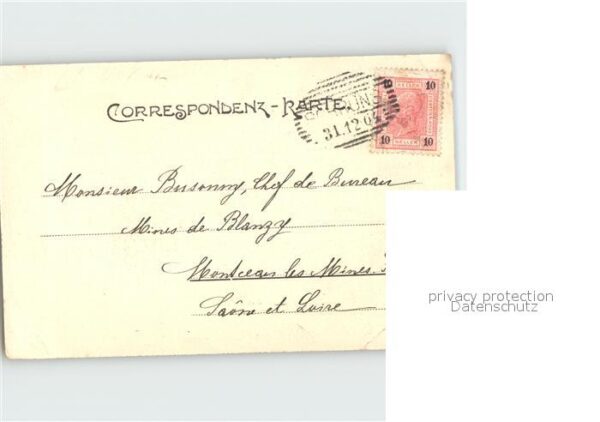 CORRESPONDENZ-KARTE
31.12.04
10 10
10 10
HELLER
Monsieur Busonny, Chef de Bureau
Mines de Blanzy
Montceau les Mines
Saône et Loire
privacy protection
Datenschutz